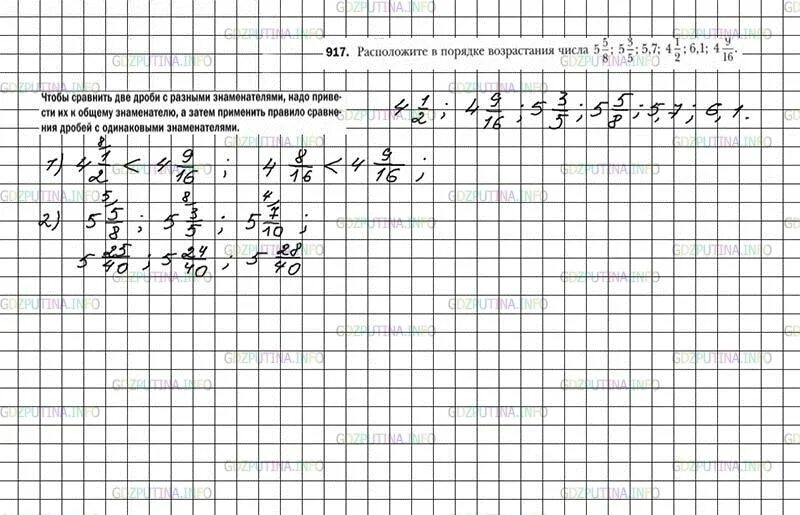 917. Расположите в порядке возрастания числа 5 5/8; 5 3/5; 5,7; 4 1/2; 6,1; 4 9/16.
Чтобы сравнить две дроби с разными знаменателями, надо приве-
сти их к общему знаменателю, а затем применить правило сравне-
ния дробей с одинаковыми знаменателями.
4 1/2; 4 9/16; 5 3/5; 5 5/8; 5,7; 6,1.
8
1) 4 1/2 < 4 9/16; 4 8/16 < 4 9/16;
5 8 4
2) 5 5/8; 5 3/5; 5 7/10;
5 25/40; 5 24/40; 5 28/40
GDZPUTINA.INFO